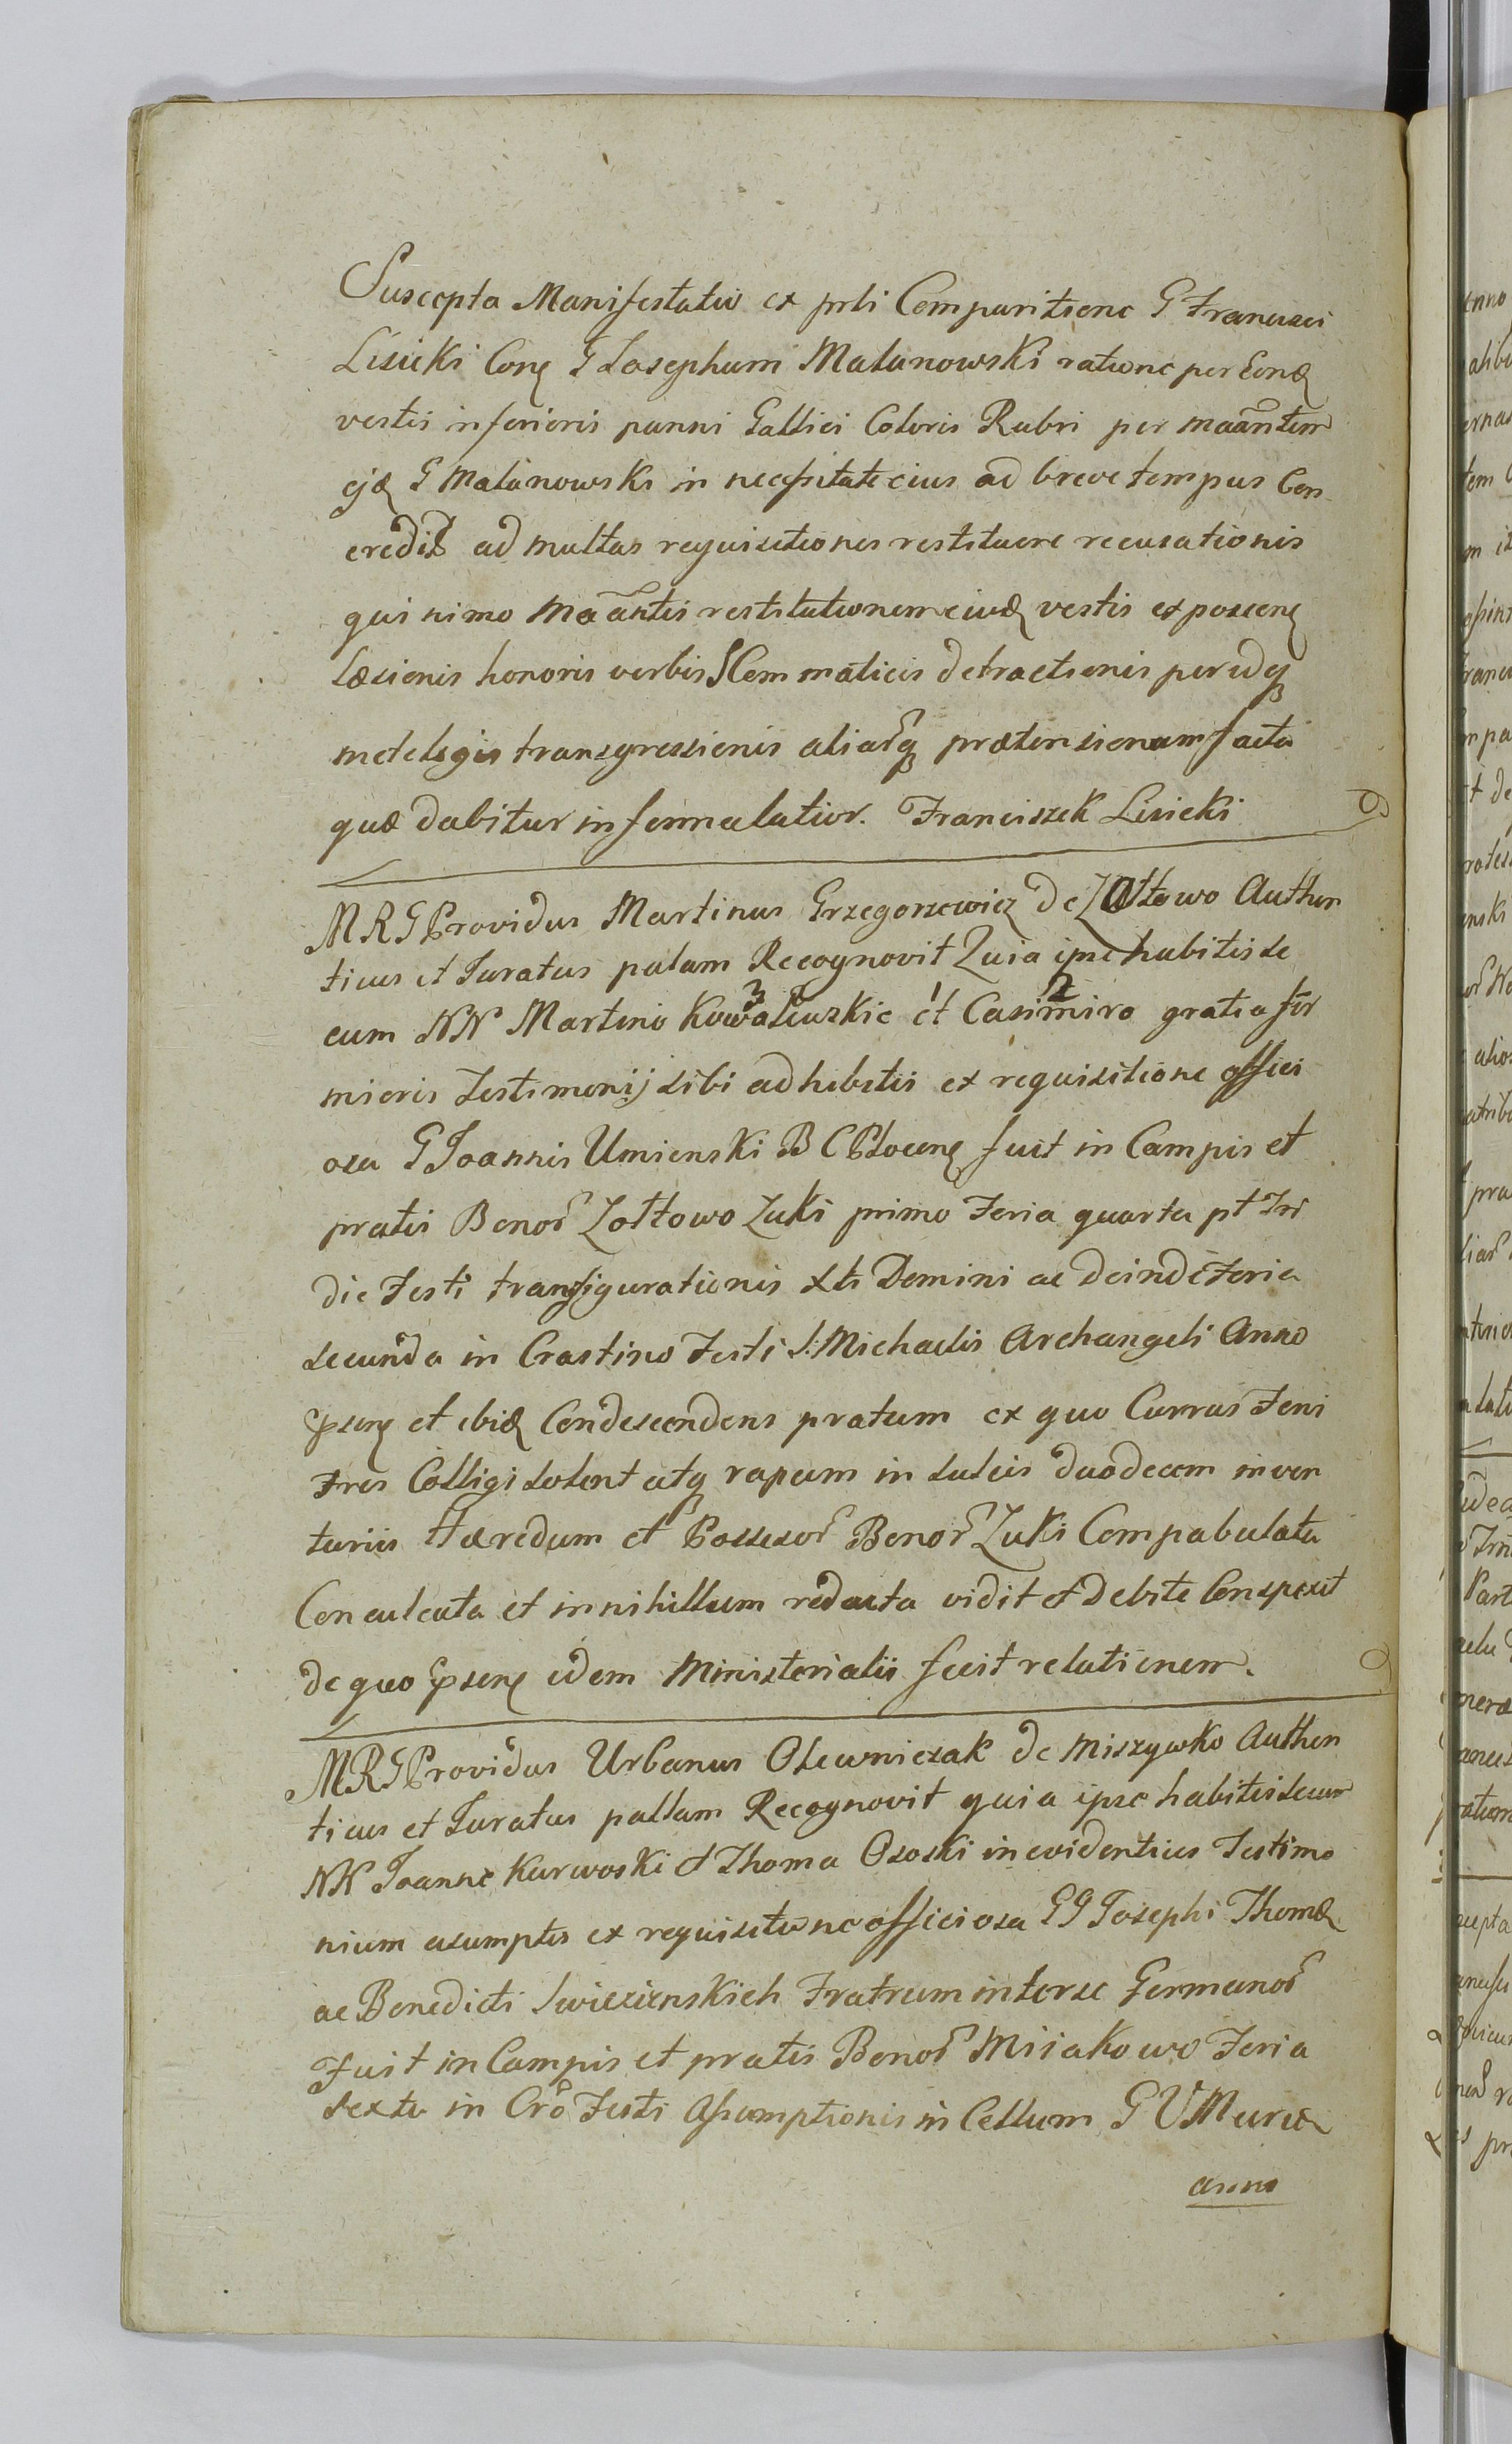 Suscepta Manifestatio ex prli Comparitione G Francisci
Lisicki Con G Josephum Malanowski ratione per Eund
vestis inferioris panni Gallici Coloris Rubri per maantem
ejd G Malanowski in necessitate eius ad breve tempus Con
credit ad multas requisitiones restituere recusationis
qui nimo Maantis restitutionem eiusd vestis exposcen
Læsionis honoris verbis SCommaticis detractionis per idq
met legis transgressionis aliarq prætensionum facta
quæ dabitur in formulatior. Franciszek Lisicki
MRG Providus Martinus Grzegorzewicz de Zołtowo Authen
ticus et Juratus palam Recognovit Quia ipse habitis se
cum NN Martino Kowaliuszkic et Casimiro gratia fir
mioris Testimonij sibi adhibitis ex requisitione offici
osa G Joannis Umienski B C Plocen fuit in Campis et
pratis Bonor Zołtowo Zuki primo Feria quarta pt Tri
die Festi transfigurationis Xti Domini ac deinde Feria
secunda in Crastino Festi S: Michaelis Archangeli Anno
Psen et ibid Condescendens pratum ex quo Currus Feni
Tres Colligi solent atq rapum in sulcis duodecem inven
turiis Hæredum et Possesor Bonor Zuki Compabulata
Conculcata et in nihillum redacta vidit et Debite Conspexit
de quo Psen idem Ministerialis fecit relationem.
MRG Providus Urbanus Olewniczak de Miszywko Authen
ticus et Juratus pallam Recognovit quia ipse habitis secum
NN Joanne Karwoski et Thoma Ososki in evidentius Testimo
nium asumptis ex requisitione officiosa GG Josephi Thomæ
ac Benedicti Swiezienskich Fratrum inter se Germanor
Fuit in Campis et pratis Bonor Misiakowo Feria
sexta in Cro Festi Assumptionis in Cellum G V Mariæ
anno